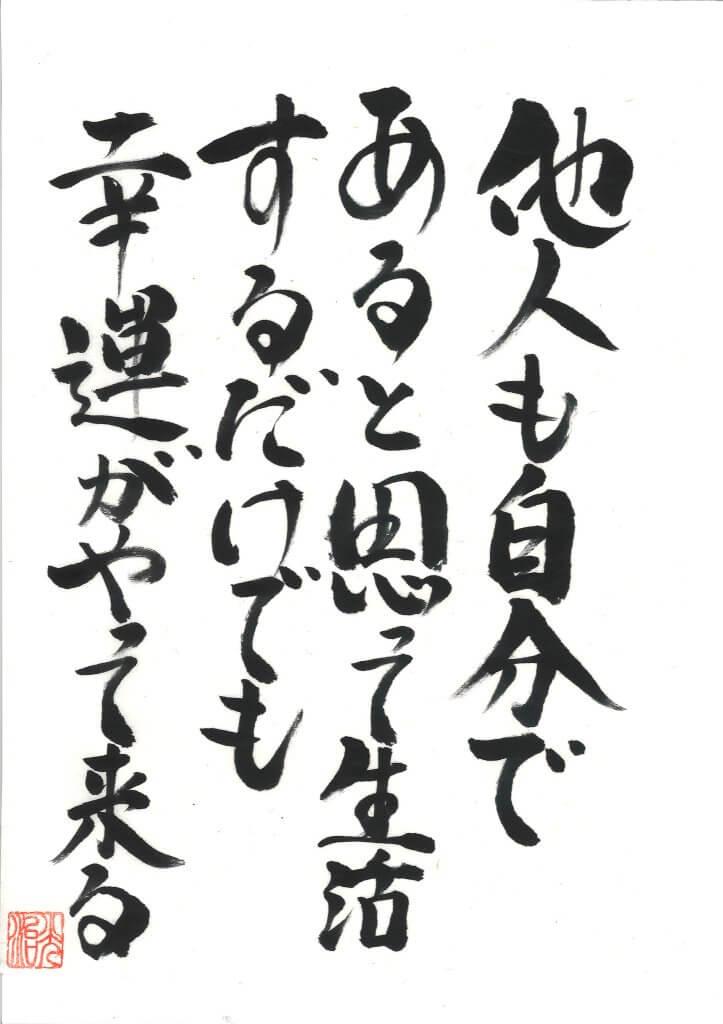 他人も自分で
あると思って生活
するだけでも
幸運がやって来る